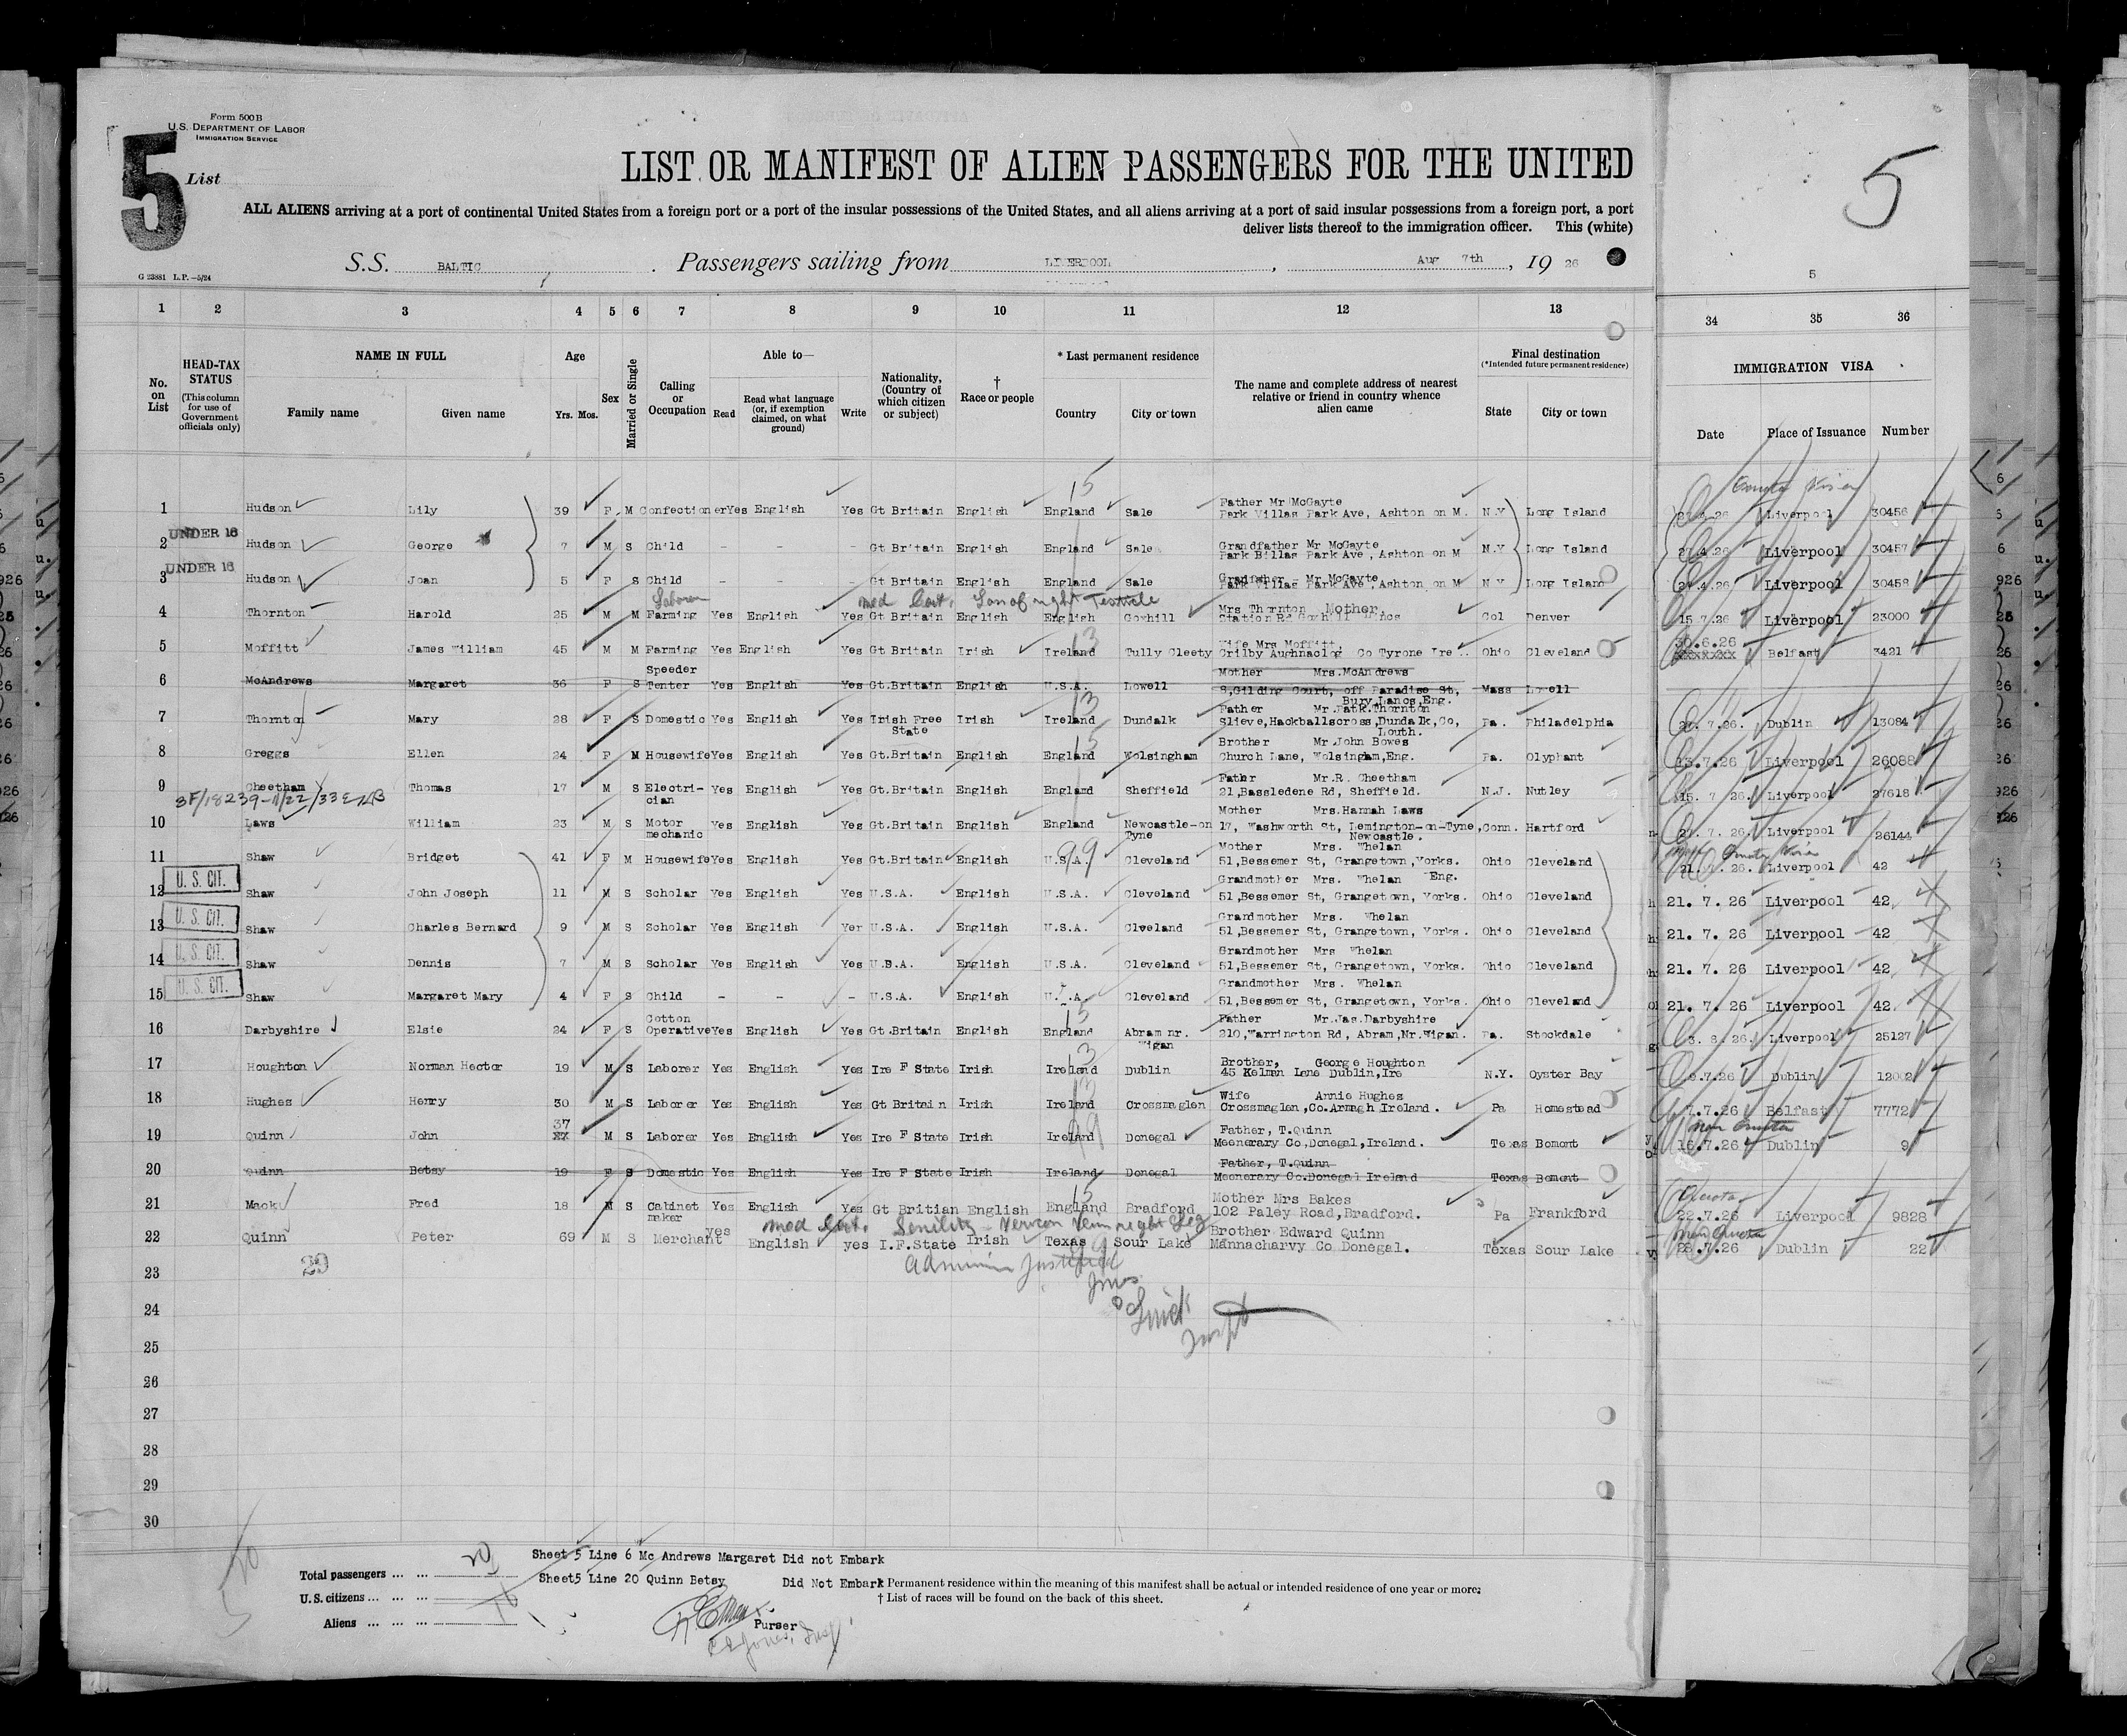 Form 500 B
U.S. DEPARTMENT OF LABOR
IMMIGRATION SERVICE
5
List
5
LIST OR MANIFEST OF ALIEN PASSENGERS FOR THE UNITED
ALL ALIENS arriving at a port of continental United States from a foreign port or a port of the insular possessions of the United States, and all aliens arriving at a port of said insular possessions from a foreign port, a port
deliver lists thereof to the immigration officer. This (white)
S.S. BALTIC Passengers sailing from LIVERPOOL, Aug 7th, 19 26
G 23881 L.P.—5/24
5
1 2 3 4 5 6 7 8 9 10 11 12 13 34 35 36
No. on List
HEAD-TAX STATUS (This column for use of Government officials only)
NAME IN FULL
Family name Given name
Age Yrs. Mos.
Sex
Married or Single
Calling or Occupation
Able to—
Read Read what language (or, if exemption claimed, on what ground) Write
Nationality, (Country of which citizen or subject)
† Race or people
* Last permanent residence
Country City or town
The name and complete address of nearest relative or friend in country whence alien came
Final destination (*Intended future permanent residence)
State City or town
IMMIGRATION VISA
Date Place of Issuance Number
15 Quota Visa
Father Mr McGayte
1 Hudson Lily 39 F M Confectioner Yes English Yes Gt Britain English England Sale Park Villas Park Ave, Ashton on M. N.Y Long Island 27.4.26 Liverpool 30456
UNDER 16
Grandfather Mr McGayte
2 Hudson George 7 M S Child - - - Gt Britain English England Sale Park Billas Park Ave, Ashton on M N.Y Long Island 27.4.26 Liverpool 30457
UNDER 16
Grandfather - Mr McGayte
3 Hudson Joan 5 F S Child - - - Gt Britain English England Sale Park Villas Park Ave, Ashton on M N Y Long Island 27.4.26 Liverpool 30458
Laborer med Cert. Loss of right Testicle
Mrs Thornton Mother,
4 Thornton Harold 25 M M Farming Yes English Yes Gt Britain English English Goxhill Station Rd Goxhill Lincs Col Denver 15.7.26 Liverpool 23000
13 Wife Mrs Moffitt 30.6.26
5 Moffitt James William 45 M M Farming Yes English Yes Gt Britain Irish Ireland Tully Cleety Crilby Aughnacloy Co Tyrone Ire.. Ohio Cleveland xxxxxxxx Belfast 3421
Speeder Mother Mrs.McAndrews
6 McAndrews Margaret 36 F S Tenter Yes English Yes Gt.Britain English U.S.A. Lowell 8,Gilding Court, off Paradise St, Mass Lowell
Bury,Lancs,Eng.
13 Father Mr.Patk.Thornton
7 Thornton Mary 28 F S Domestic Yes English Yes Irish Free Irish Ireland Dundalk Slieve,Hackballscross,Dundalk,Co, Pa. Philadelphia 7.26. Dublin 13084
State Louth.
15 Brother Mr John Bowes
8 Greggs Ellen 24 F M Housewife Yes English Yes Gt.Britain English England Wolsingham Church Lane, Wolsingham,Eng. Pa. Olyphant 13.7.26 Liverpool 26088
Father Mr.R. Cheetham
9 Cheetham Thomas 17 M S Electri- Yes English Yes Gt.Britain English England Sheffield 21,Bassledene Rd, Sheffield. N.J. Nutley 15. 7 26. Liverpool 27618
cian
3F/18239-11/22/33
Mother Mrs.Hannah Laws
10 Laws William 23 M S Motor Yes English Yes Gt.Britain English England Newcastle-on 17, Washworth St, Lemington-on-Tyne, Conn. Hartford 27. 7. 26. Liverpool 26144
mechanic Tyne Newcastle.
99 Mother Mrs. Whelan
11 Shaw Bridget 41 F M Housewife Yes English Yes Gt.Britain English U.S.A. Cleveland 51,Bessemer St, Grangetown,Yorks. Ohio Cleveland 21. 7. 26. Liverpool 42
Eng.
U. S. CIT.
Grandmother Mrs. Whelan
12 Shaw John Joseph 11 M S Scholar Yes English Yes U.S.A. English U.S.A. Cleveland 51,Bessemer St, Grangetown, Yorks. Ohio Cleveland 21. 7. 26 Liverpool 42
U. S. CIT.
Grandmother Mrs. Whelan
13 Shaw Charles Bernard 9 M S Scholar Yes English Yer U.S.A. English U.S.A. Clveland 51,Bessemer St, Grangetown, Yorks. Ohio Cleveland 21. 7. 26 Liverpool 42
U. S. CIT.
Grandmother Mrs Whelan
14 Shaw Dennis 7 M S Scholar Yes English Yes U.S.A. English U.S.A. Cleveland 51,Bessemer St, Grangetown, Yorks. Ohio Cleveland 21. 7. 26 Liverpool 42
U. S. CIT.
Grandmother Mrs. Whelan
15 Shaw Margaret Mary 4 F S Child - - - U.S.A. English U.S.A. Cleveland 51,Bessemer St, Grangetown, Yorks. Ohio Cleveland 21. 7. 26 Liverpool 42
Cotton 15 Father Mr.Jas.Darbyshire
16 Darbyshire Elsie 24 F S Operative Yes English Yes Gt.Britain English England Abram nr. 210,Warrington Rd, Abram,Nr.Wigan. Pa. Stockdale 3. 8. 26. Liverpool 25127
Wigan
13 Brother, George Houghton
17 Houghton Norman Hector 19 M S Laborer Yes English Yes Ire F State Irish Ireland Dublin 45 Kelman Lane Dublin,Ire N.Y. Oyster Bay 9.7.26 Dublin 12002
13 Wife Annie Hughes
18 Hughes Henry 30 M S Laborer Yes English Yes Gt Britain Irish Ireland Crossmaglen Crossmaglen,Co.Armagh Ireland. Pa Homestead 7.7.26 Belfast 7772
37 99 Father, T.Quinn Non Quota
19 Quinn John xx M S Laborer Yes English Yes Ire F State Irish Ireland Donegal Meenerary Co,Donegal,Ireland. Texas Bomont 16.7.26 Dublin 9
Father, T.Quinn
20 Quinn Betsy 19 F S Domestic Yes English Yes Ire F State Irish Ireland Donegal Meenerary Co.Donegal Ireland Texas Bomont
15 Mother Mrs Bakes Quota
21 Mack Fred 18 M S Cabinet Yes English Yes Gt Britian English England Bradford 102 Paley Road,Bradford. Pa Frankford 22.7.26 Liverpool 9828
maker
med Cert. Senility - Vericon Vein right Leg
yes Brother Edward Quinn Non Quota
22 Quinn Peter 69 M S Merchant English yes I.F.State Irish Texas Sour Lake Mannacharvy Co Donegal. Texas Sour Lake 28.7.26 Dublin 22
99
29 Admission Justified
23
24
Inspt
25
26
27
28
29
30
Sheet 5 Line 6 Mc Andrews Margaret Did not Embark
Total passengers ... ... 20
Sheet5 Line 20 Quinn Betsy Did Not Embark
* Permanent residence within the meaning of this manifest shall be actual or intended residence of one year or more.
U.S. citizens ... ... ...
† List of races will be found on the back of this sheet.
Aliens ... ... ... 16
Purser
Jones, Insp